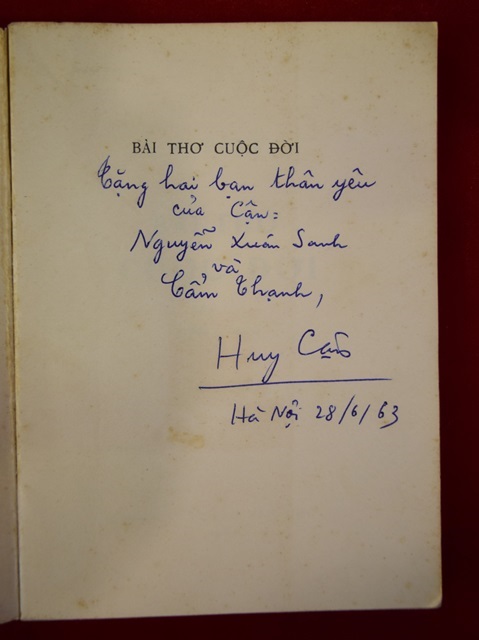 BÀI THƠ CUỘC ĐỜI
Tặng hai bạn thân yêu
của Cận:
Nguyễn Xuân Sanh
và
Cẩm Thạnh,
Huy Cận
Hà Nội 28/6/63